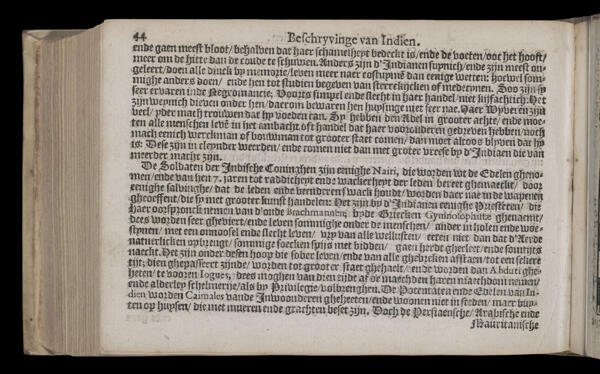 44 Beschryvinge van Indien.
ende gaen meest bloot/ behalven dat haer schamelheyt bedeckt is/ ende de voeten/ oot het hooft/
meer om de hitte dan de coude te schuwen. Anders zijn d'Indianen suynich/ ende zijn meest on-
geleert/ doen alle dinck by memorie/ leven meer naer costuyme dan eenige wetten: hoewel som-
mighe anders doen/ ende hen tot studien begeven van sterrekijcken of medecynen. Soo zijn sy
seer ervaren inde Negromancie; Voorts simpel ende slecht in haer handel/ niet kijfachtich: Het
zijn weynich dieven onder hen/ daerom bewaren hen huysinge niet seer nae. Haer Wyven zijn
veel/ yder mach trouwen dat hy voeden can. Sy hebben den Adel in grooter achte/ ende moe-
ten alle menschen levē in het ambacht oft handel dat haer voorouderen gedreven hebben/ noch
mach eenich werckman of bouwman tot grooter staet comen/ dan moet altoos blyven dat hy
is: Dese zijn in cleynder weerden/ ende comen niet dan met groter vreese by d'Indiaen die van
meerder macht zijn.
De Soldaten der Indische Coninghen zijn eenighe Nairi, die worden uyt de Edelen gheno-
men/ ende van hen 7. jaren tot raddicheyt ende wackerheyt der leden bereet ghemaeckt/ door
eenighe salvinghe/ dat de leden ende swack houdt/ worden daer nae inde wapenen
gheoeffent/ die sy met grooter kunst handelen: Het zijn by d'Indianen eenighe Priesteren/ die
haer oorspronck nemen van d'onde Brachmannen, byde Griecken Gymnosophistæ ghenaemt/
dees worden seer gheviert/ ende leven sommighe onder de menschen/ ander in holen ende woe-
stynen/ met een onnoosel ende slecht leven/ vry van alle wellusten/ eeten niet dan dat d'Aerde
natuerlicken opbrengt/ sommige soecken spijs met bidden/ gaen heerde gheclert/ ende sommige
naeckt. Het zijn onder desen hoop die sober leven/ ende van alle ghebreken afstaen/ tot een sekere
tijt; dien ghepasseert zijnde/ worden tot grooter staet ghehaelt/ ende worden dan Abduti ghe-
heten/ te vooren Iogues, dees moghen van dien tijdt af de maechden haren maechdom nemen/
ende alderley schelmerije/ als by Privilegie/ volbrenghen. De Potentaten ende Edelen van In-
dien worden Caimales vande Inwoonderen gheheeten/ ende woonen niet in steden/ maer buy-
ten op huysen/ die met mueren ende grachten beset zijn. Doch de Persiaensche/ Arabische ende
Mauritanische